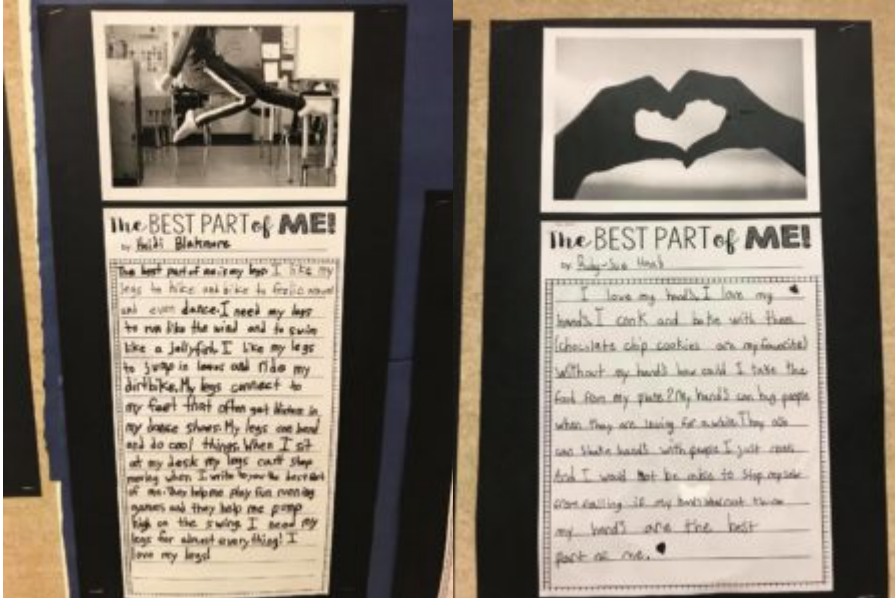 The BEST PART of ME!
by Heidi Blakmore
The best part of me is my legs I like my
legs to hike and bike to frolic around
and even dance. I need my legs
to run like the wind and to swim
like a jellyfish. I like my legs
to jump in leaves and ride my
dirtbike. My legs connect to
my feet that often get blisters in
my dance shoes. My legs can bend
and do cool things. When I sit
at my desk my legs can't stop
moving when I write to you the best part
of me. They help me play fun running
games and they help me pump
high on the swing. I need my
legs for almost everything! I
love my legs!
The BEST PART of ME!
by Ruby-Sue
I love my hands. I love my
hands. I cook and bake with them
(chocolate chip cookies are my favourite)
Without my hands how could I take the
food from my plate? My hands can hug people
when they are leaving for a while. They also
can shake hands with people I just meet
And I would not be able to stop myself
from falling if my hands were not
my hands are the best
part of me.